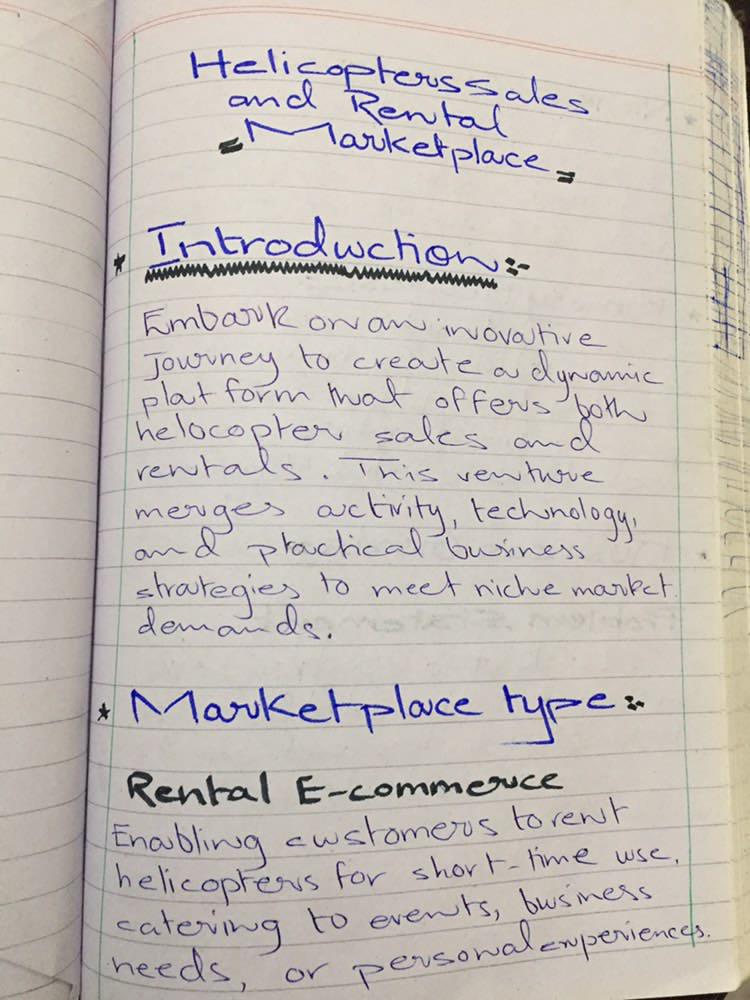 Helicopters sales
and Rental
= Marketplace =
* Introduction :-
Embark on an inovative
Journey to create a dynamic
platform that offers both
helocopter sales and
rentals. This venture
merges activity, technology,
and practical business
strategies to meet niche market
demands.
* Marketplace type :-
Rental E-commerce
Enabling customers to rent
helicopters for short-time use,
catering to events, business
needs, or personal experiences.